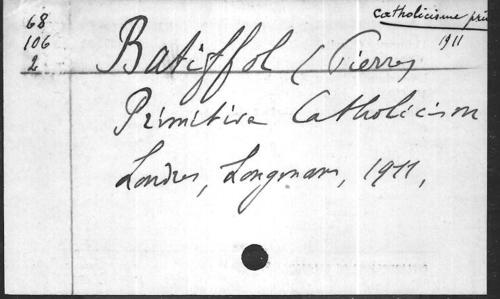 68
106
2
catholicisme pri
1911
Batiffol (Pierre)
Primitive Catholicism
Londres, Longmans, 1911,